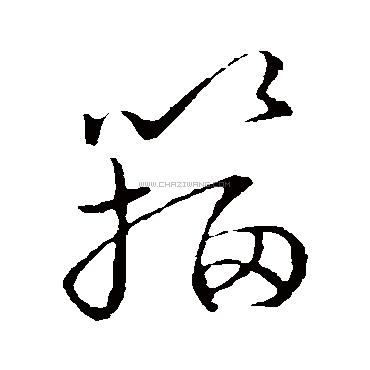 籀
WWW.CHAZIWANG.COM